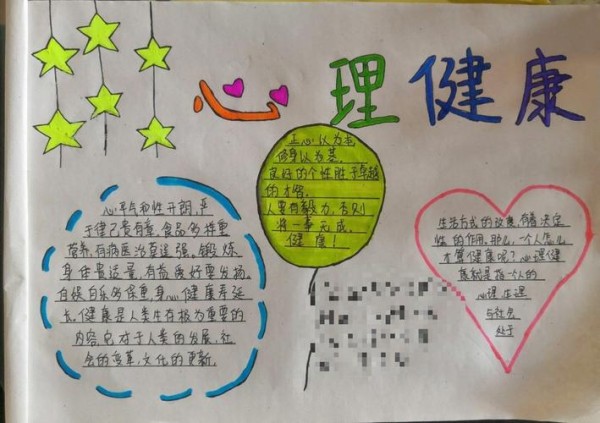 心理健康
正心以为本,
修身以为基。
良好的个性胜于卓越
的才智。
人要有毅力,否则
将一事无成。
健康!
心平气和性开朗,严
于律己要有章,食品多样重
营养,有病医治莫逞强。锻炼
身体贵适量,有益爱好要发扬。
自娱自乐多保重,身心健康寿延
长,健康是人类生存极为重要的
内容,它对于人类的发展,社
会的变革,文化的更新,
生活方式的改变,有着决定
性的作用。那么,一个人怎么
才算健康呢?心理健
康就是指一个人的
心理生理
与社会
处于